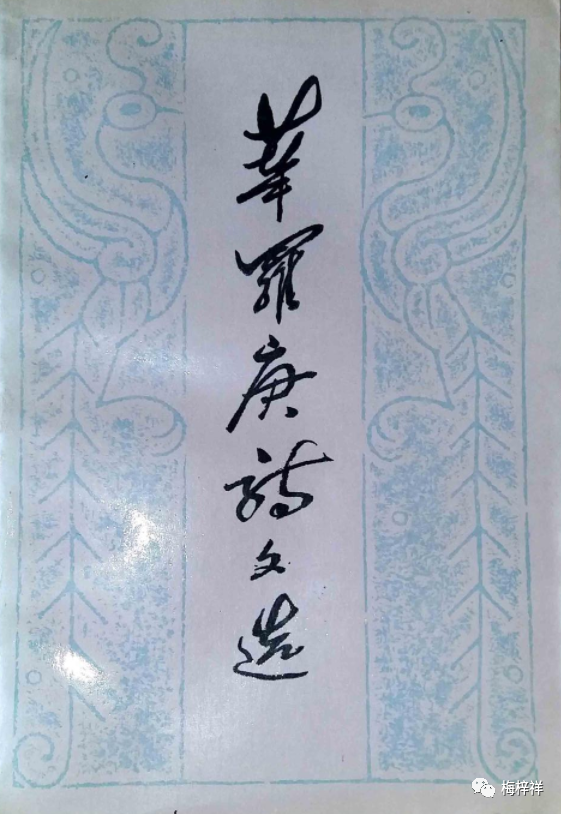 華羅庚詩文选
梅梓祥